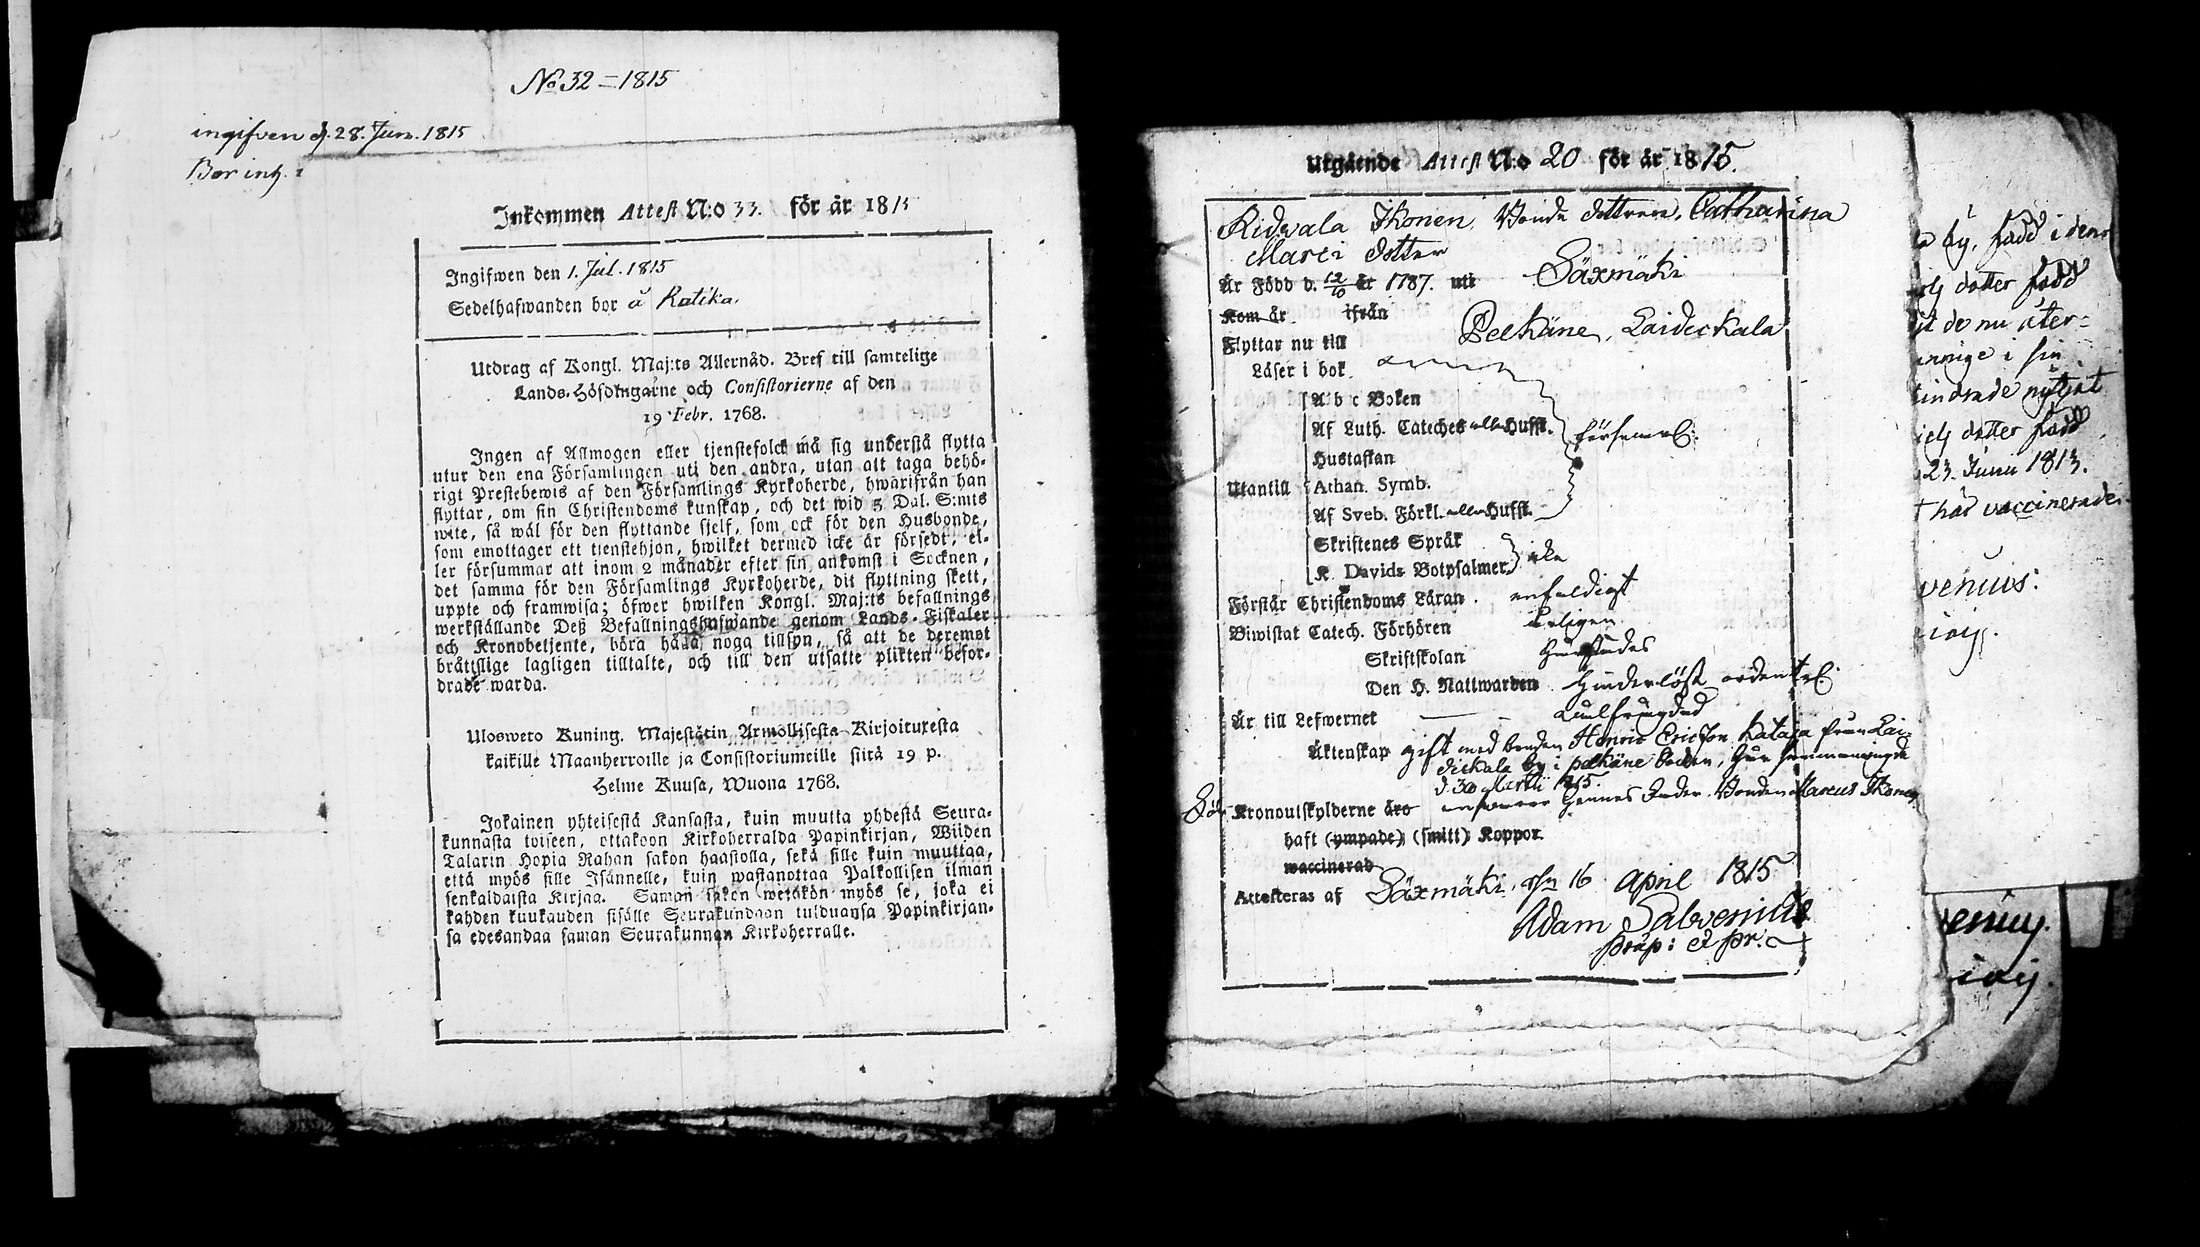 No 32 = 1815
ingifven d. 28. Jun. 1815
Bor
Inkommen Attest N:o 33. för år 1815
Ingifwen den 1. Jul. 1815
Sedelhafwanden bor å Ratika.
Utdrag af Kongl. Maj:ts Allernåd. Bref till samtelige
Lands-Höfdingarne och Consistorierne af den
19 Febr. 1768.
Ingen af Allmogen eller tjenstefolck må sig understå flytta
utur den ena Församlingen uti den andra, utan att taga behö-
rigt Prestebewis af den Församlings Kyrkoherde, hwarifrån han
flyttar, om sin Christendoms kunskap, och det wid 5 Dal. S:mts
wite, så wäl för den flyttande sjelf, som ock för den Husbonde,
som emottager ett tienstehjon, hwilket dermed icke är försedt; el-
ler försummar att inom 2 månader efter sin ankomst i Socknen,
det samma för den Församlings Kyrkoherde, dit flyttning skett,
uppte och framwisa; öfwer hwilken Kongl. Maj:ts befallnings
werkställande Deß Befallningshafwande genom Lands-Fiskaler
och Kronobetjente, böra hålla noga tillsyn, så att de deremot
bråttslige lagligen tilltalte, och till den utsatte plikten befor-
drade warda.
Ulosweto Kuning. Majestätin Armollisesta Kirjoituxesta
kaikille Maanherroille ja Consistoriumeille siitä 19 p.
Helme Kuusa, Wuona 1768.
Jokainen yhteisestä Kansasta, kuin muutta yhdestä Seura-
kunnasta toiseen, ottakoon Kirkoherralda Papinkirjan, Wiiden
Talarin Hopia Rahan sakon haastolla, sekä sille kuin muuttaa,
että myös sille Isännelle, kuin wastanottaa Palkollisen ilman
senkaldaista Kirjaa. Saman sakon wetäkön myös se, joka ei
kahden kuukauden sisälle Seurakundaan tulduansa Papinkirjan-
sa edesandaa saman Seurakunnan Kirkoherralle.
Utgående Attest N:o 20 för år 1815.
Ridvala Ikonen Bonde dottren, Catharina
Marci dotter
Är Född d. 12/10 år 1787. uti Säxmäki
Kom år ifrån
Flyttar nu till Pelkäne, Laideckala
Läser i bok
Utantill
A b c Boken
Af Luth. Cateches eller Huffst.
Hustaflan
Athan. Symb.
Af Sveb. Förkl. eller Huffst.
försvarl.
Skriftenes Språk
K. Davids Botpsalmer
icke
Förstår Christendoms Läran enfaldigt
Biwistat Catech. Förhören årligen
Skriftskolan
Den H. Nattwarden hinderlöst ordentel.
Är till Lefwernet välfrägdad
Äktenskap gift med bonden Henric Ericsson Kataja från Lai-
dickala by i pelkäne Socken, här sammanvigde
d. 30 Martii 1815.
För Kronoutskylderne äro ansvarar hennes Fader Bonden Marcus Ikonen
haft (ympade) (smitt) Koppor.
waccinerad
Attesteras af Säxmäki, 16 April 1815
Adam Salvenius
præp: & pr.
by, född i denna
dotter född
de nu åter-
i sin
nyttjat
dotter född
23. Junii 1813.
har vaccinerade
venius: